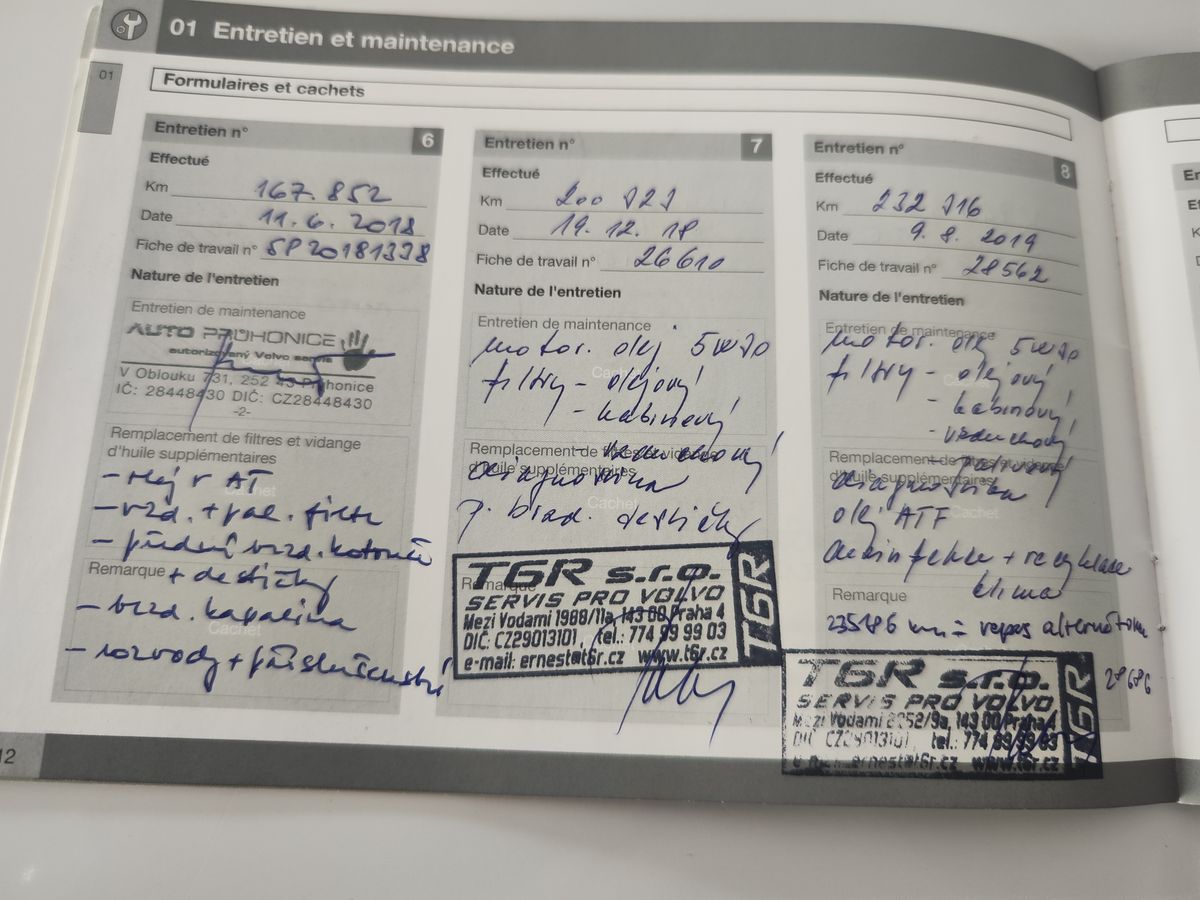 01 Entretien et maintenance
01
Formulaires et cachets
Entretien n° 6
Effectué
Km 167.852
Date 11.6.2018
Fiche de travail n° SP20181338
Nature de l'entretien
Entretien de maintenance
AUTO PRŮHONICE
autorizovaný Volvo servis
V Oblouku 731, 252 43 Průhonice
IČ: 28448430 DIČ: CZ28448430
-2-
Remplacement de filtres et vidange
d'huile supplémentaires
- olej v AT
Cachet
- vzd. + pal. filtr
- přední brzd. kotouče
Remarque + destičky
- brzd. kapalina
Cachet
- rozvody + příslušenství
Entretien n° 7
Effectué
Km 200
Date 19.12.18
Fiche de travail n° 26610
Nature de l'entretien
Entretien de maintenance
motor. olej 5W30
filtry - olejový
Cachet
- kabinový
- vzduchový
Remplacement de filtres et vidange
d'huile supplémentaires
diagnostika
Cachet
p. brzd. destičky
Remarque
T6R s.r.o.
SERVIS PRO VOLVO
Mezi Vodami 1988/11a, 143 00 Praha 4
DIČ: CZ29013101, tel.: 774 99 99 03
e-mail: ernest@t6r.cz www.t6r.cz
T6R
Entretien n° 8
Effectué
Km 232 916
Date 9.8.2019
Fiche de travail n° 28562
Nature de l'entretien
Entretien de maintenance
motor. olej 5W30
filtry - olejový
Cachet
- kabinový
- vzduchový
- palivový
Remplacement de filtres et vidange
d'huile supplémentaires
diagnostika
olej ATF
Cachet
dezinfekce + recyklace
klima
Remarque
235186 km = repas alternátoru
28686
T6R s.r.o.
SERVIS PRO VOLVO
Mezi Vodami 2052/9a, 143 00 Praha 4
DIČ CZ29013101, tel.: 774 99 99 03
ernest@t6r.cz www.t6r.cz
T6R
12